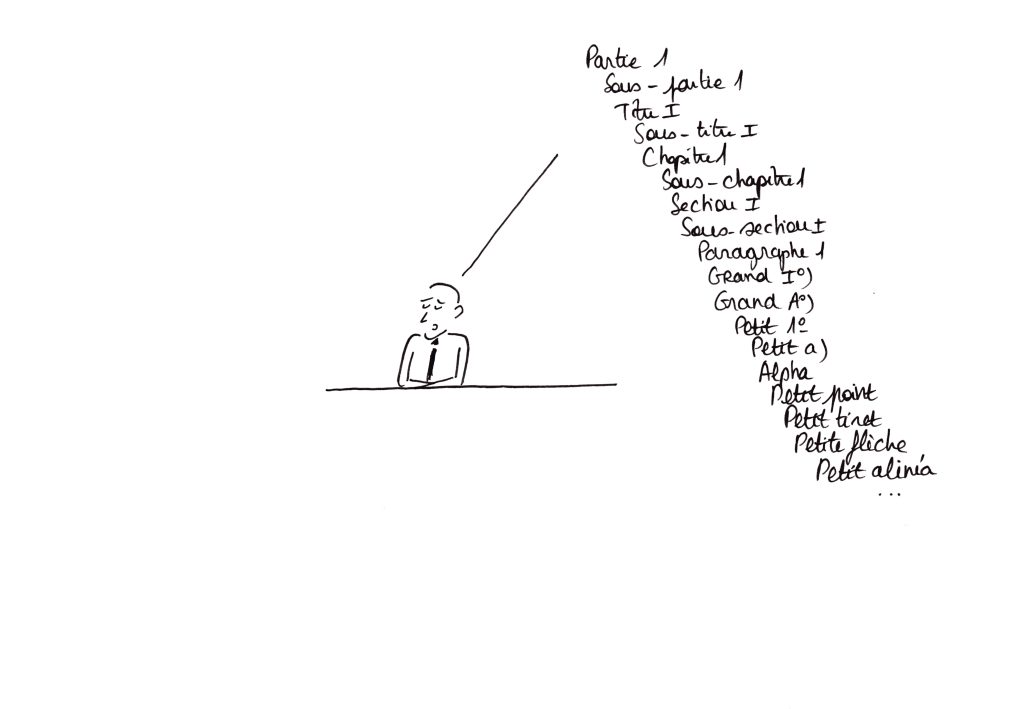 Partie 1
Sous-partie 1
Titre I
Sous-titre I
Chapitre 1
Sous-chapitre 1
Section I
Sous-section I
Paragraphe 1
Grand I°)
Grand A°)
Petit 1º
Petit a)
Alpha
Petit point
Petit tiret
Petite flèche
Petit alinéa
...